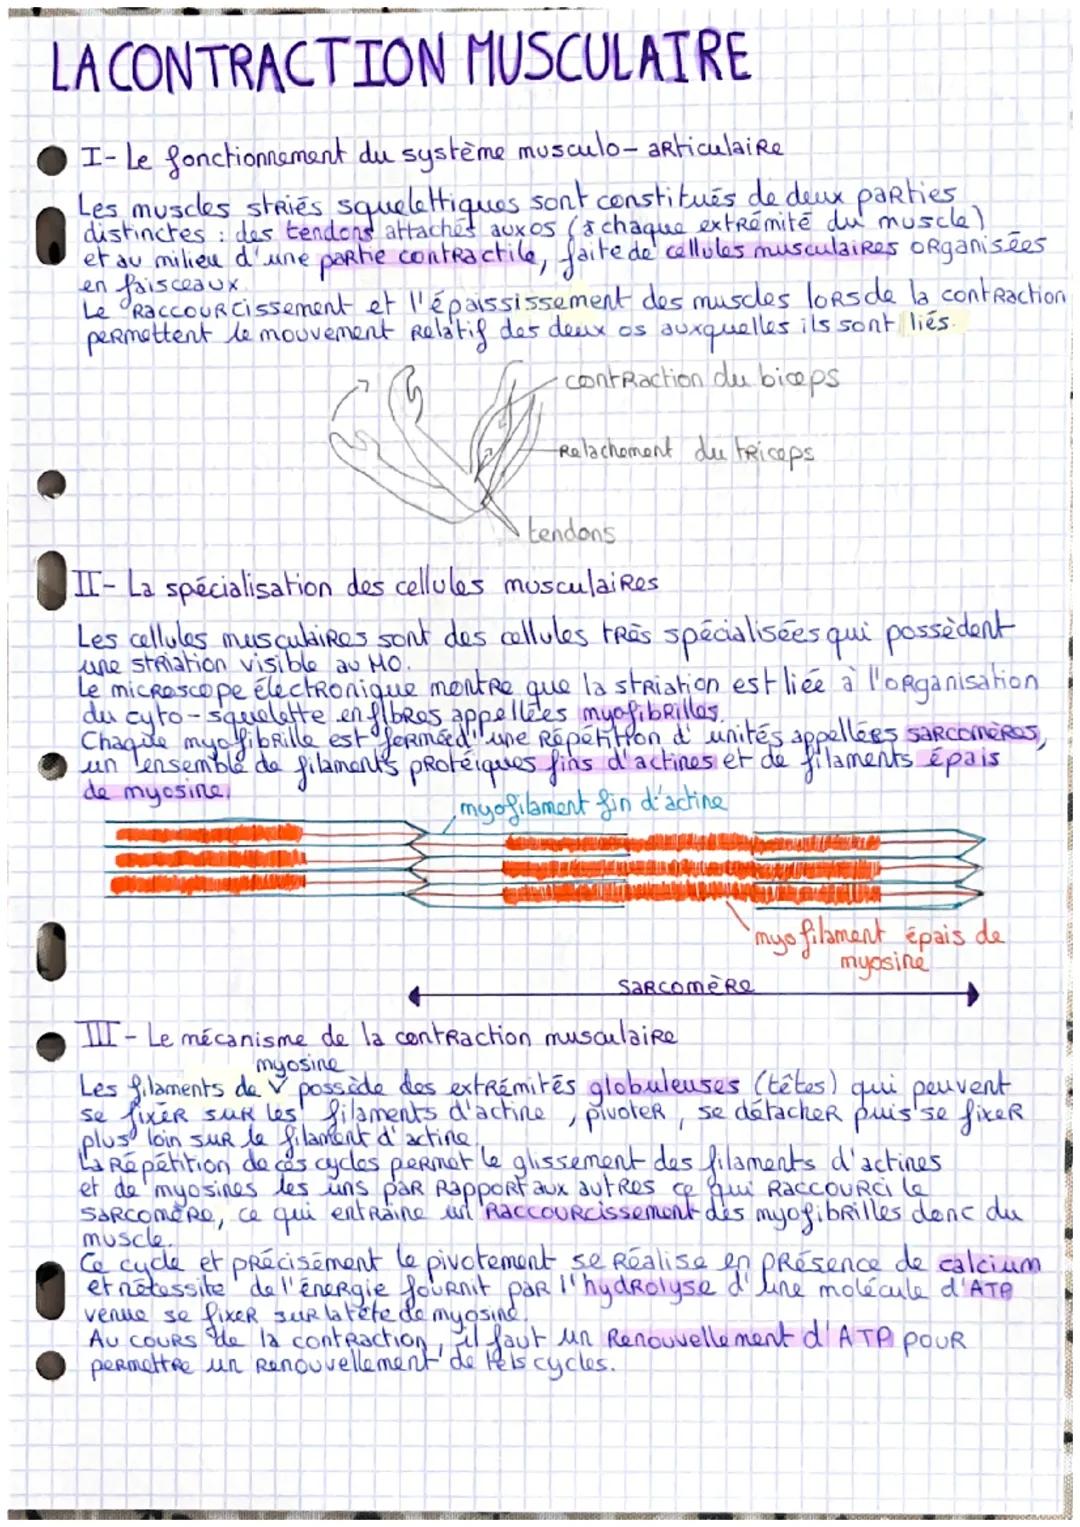 LA CONTRACTION MUSCULAIRE
I- Le fonctionnement du système musculo-articulaire
Les muscles striés squelettiques sont constitués de deux parties
distinctes : des tendons attachés aux os (à chaque extrémité du muscle)
et au milieu d'une partie contractile, faite de cellules musculaires organisées
en faisceaux.
Le raccourcissement et l'épaississement des muscles lors de la contraction
permettent le mouvement relatif des deux os auxquelles ils sont liés.
contraction du biceps
relachement du triceps
tendons
II- La spécialisation des cellules musculaires
Les cellules musculaires sont des cellules très spécialisées qui possèdent
une striation visible au MO.
Le microscope électronique montre que la striation est liée à l'organisation
du cyto-squelette en fibres appellées myofibrilles.
Chaque myofibrille est formée d'une répétition d'unités appellées sarcomères,
un ensemble de filaments protéiques fins d'actines et de filaments épais
de myosine.
myofilament fin d'actine
myofilament épais de
myosine
sarcomère
III- Le mécanisme de la contraction musculaire
myosine
Les filaments de V possède des extrémités globuleuses (têtes) qui peuvent
se fixer sur les filaments d'actine, pivoter, se détacher puis se fixer
plus loin sur le filament d'actine.
La répétition de ces cycles permet le glissement des filaments d'actines
et de myosines les uns par rapport aux autres ce qui raccourci le
sarcomère, ce qui entraine un raccourcissement des myofibrilles donc du
muscle.
Ce cycle et précisément le pivotement se réalise en présence de calcium
et nécessite de l'énergie fournit par l'hydrolyse d'une molécule d'ATP
venue se fixer sur la tête de myosine.
Au cours de la contraction, il faut un renouvellement d'ATP pour
permettre un renouvellement de tels cycles.